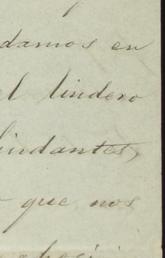 damos en
el lindero
lindantes,
que nos